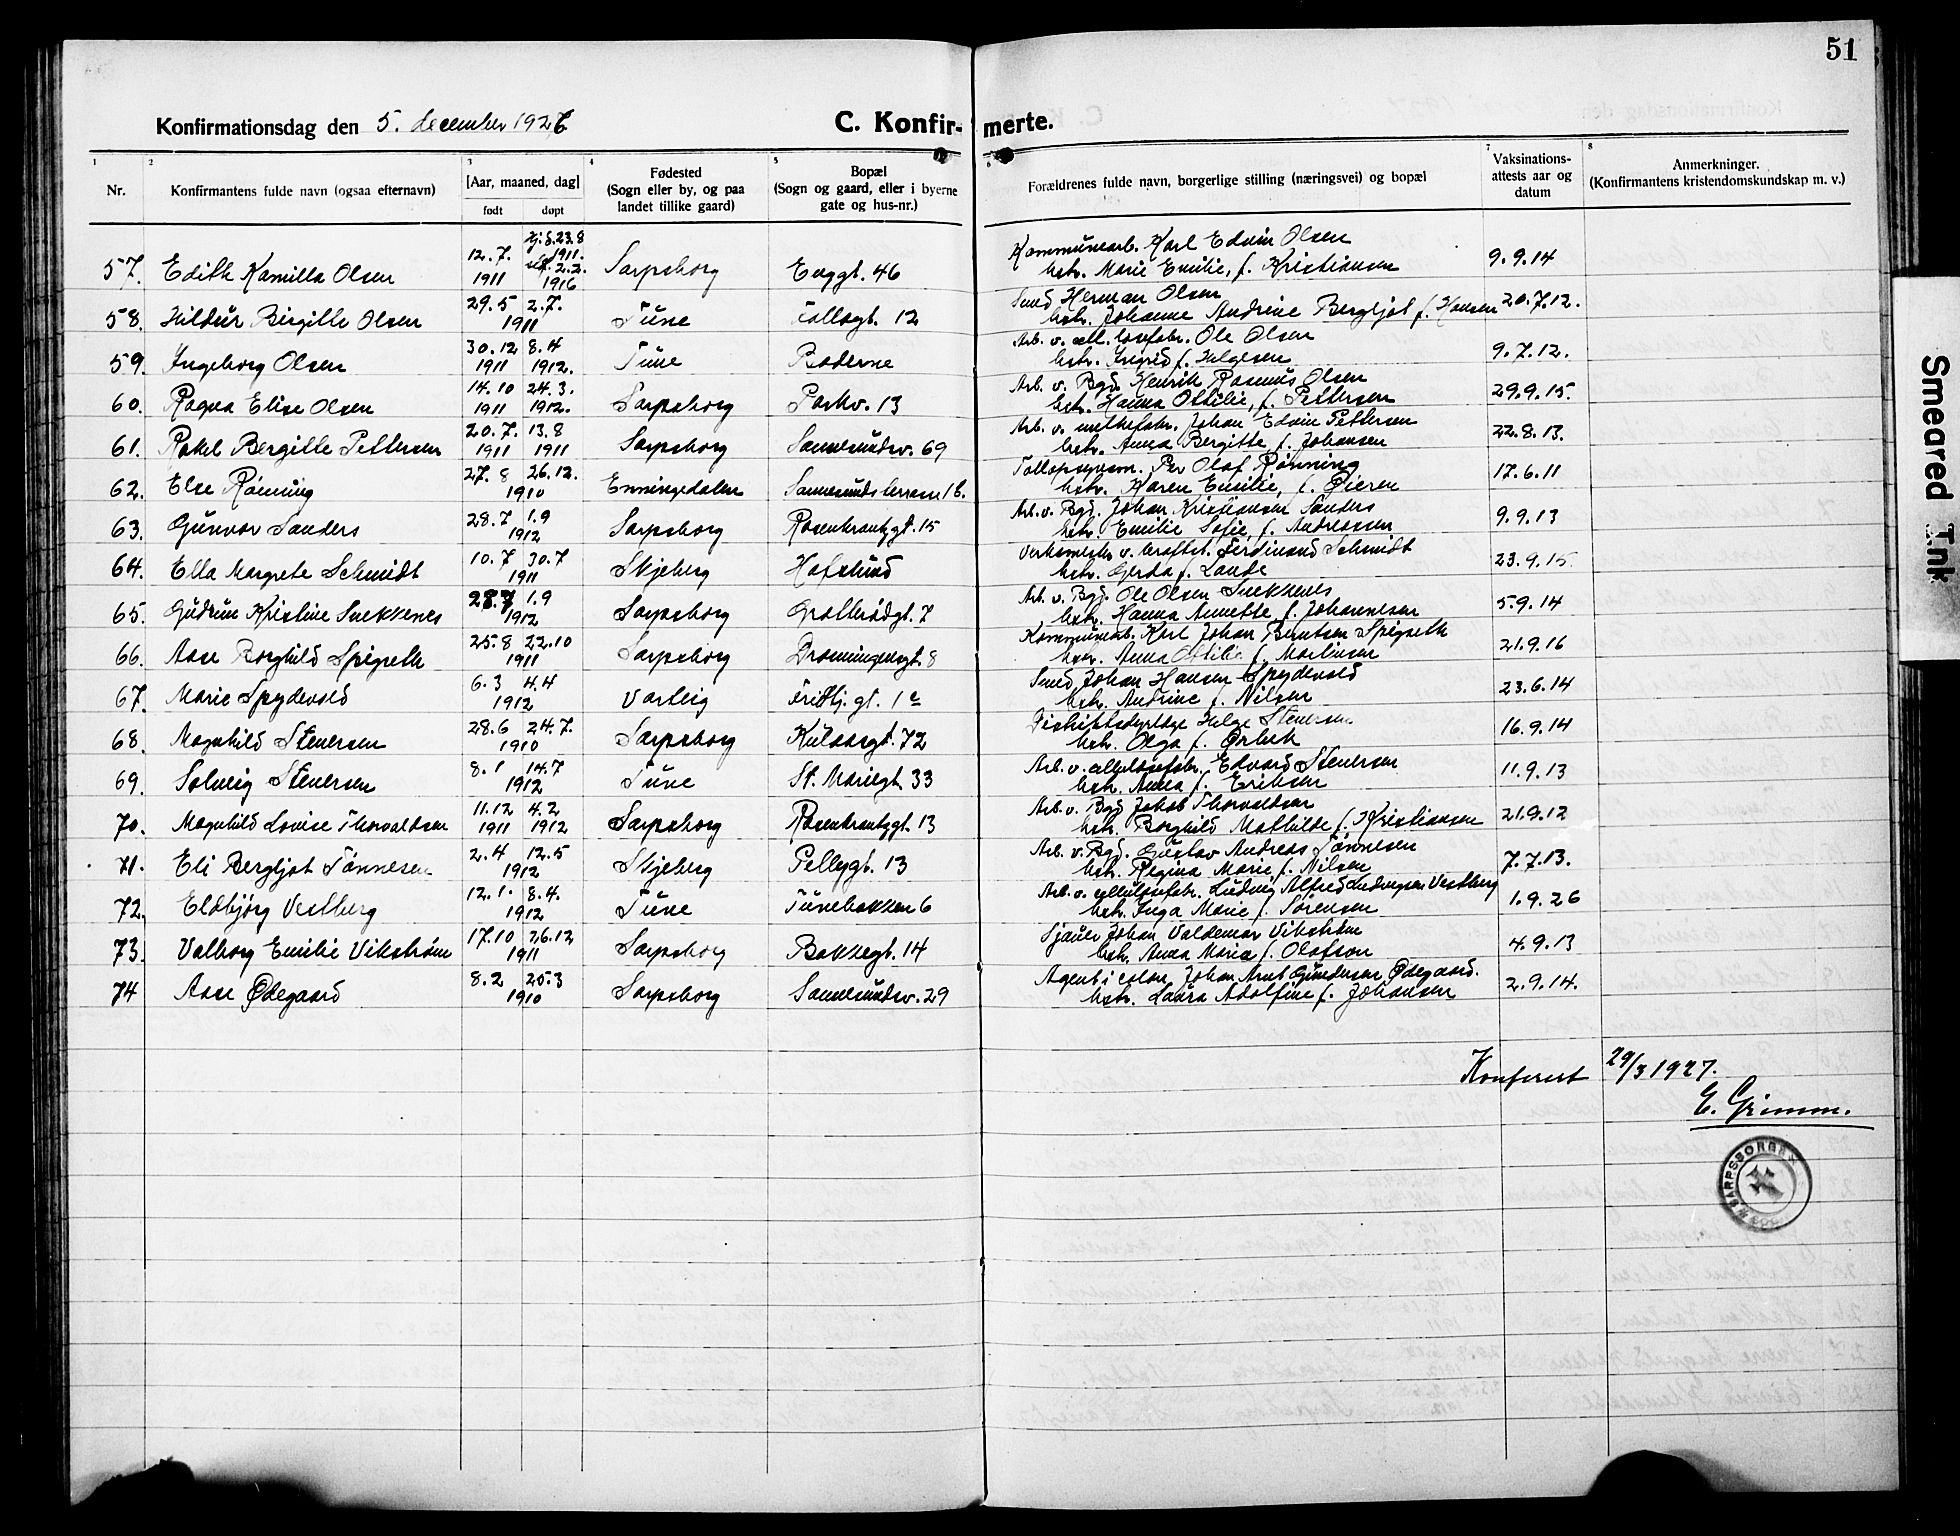 51
Konfirmationsdag den 5. december 1926
C. Konfir- merte.
1 2 3 4 5 6 7 8
Nr.
Konfirmantens fulde navn (ogsaa efternavn)
[Aar, maaned, dag]
født døpt
Fødested
(Sogn eller by, og paa
landet tillike gaard)
Bopæl
(Sogn og gaard, eller i byerne
gate og hus-nr.)
Forældrenes fulde navn, borgerlige stilling (næringsvei) og bopæl
Vaksinations-
attests aar og
datum
Anmerkninger.
(Konfirmantens kristendomskundskap m. v.)
57. Edith Kamilla Olsen 12.7. 1911 hj.d. 23.8 1911. 2.2. 1916 Sarpsborg Enggt. 46 Kommunearb. Karl Edvin Olsen
hstr. Marie Emilie, f. Kristiansen 9.9.14
58. Hildur Birgitte Olsen 29.5 2.7. 1911 Tune Tollogt. 12 Smed Herman Olsen
hstr. Johanne Andrine Bergljot f. Hansen 20.7.12.
59. Ingeborg Olsen 30.12 1911 8.4 1912. Tune Boderne Arb. v. cell.losefabr. Ole Olsen
hstr. Ingrid f. Helgesen 9.7.12.
60. Ragna Elise Olsen 14.10 1911 24.3. 1912. Sarpsborg Parkv. 13 Arb. v. Bgd. Henrik Rasmus Olsen
hstr. Hanna Ottilie, f. Pettersen 29.9.15.
61. Rakel Bergitte Pettersen 20.7. 1911 13.8 1911 Sarpsborg Sannesundsv. 69 Arb. v. Johan Edvin Pettersen
hstr. Anna Bergitte f. Johansen 22.8.13.
62. Else Rønning 27.8 26.12. 1910 Enningedalen Sannesundsterrasse 1b. Tollopsynsm. Per Olaf Rønning
hstr. Karen Emilie, f. Øieren 17.6.11
63. Gunvor Sanders 28.7 1.9 1912 Sarpsborg Rosenkrantzgt. 15 Arb. v. Bgd. Johan Kristiansen Sanders
hstr. Emilie Sofie, f. Andreassen 9.9.13
64. Ella Margrete Schmidt 10.7 30.7 1911 Skjeberg Hafslund Verksmestr. v. kraftst. Ferdinand Schmidt
hstr. Gerda f. Lande 23.9.15
65. Gudrun Kristine Snekkenes 28.7 1.9 1912 Sarpsborg Grotterødgt. 7 Arb. v. Bgd. Ole Olsen Snekkenes
hstr. Hanna Annette f. Johannesen 5.9.14
66. Aase Borghild Spigseth 25.8 22.10 1911 Sarpsborg Dronningensgt. 8 Kommunearb. Karl Johan Berntsen Spigseth
hstr. Anna Ottilie f. Martinsen 21.9.16
67. Marie Spydevold 6.3 4.4 1912 Varteig Fridtj. gt. 1 a Smed Johan Hansen Spydevold
hstr. Andrine f. Nilsen 23.6.14
68. Magnhild Stenersen 28.6 24.7. 1910 Sarpsborg Kulaasgt. 72 Distriktsdyrlæge Helge Stenersen
hstr. Olga f. Ørbek 16.9.14
69. Solveig Stenersen 8.1 14.7 1912 Tune St. Mariegt. 33 Arb. v. cellulosefabr. Edvard Stenersen
hstr. Anna f. Eriksen 11.9.13
70. Magnhild Lovise Thorvaldsen 11.12 1911 4.2 1912 Sarpsborg Rosenkrantzgt. 13 Arb. v. Bgd Jakob Thorvaldsen
hstr. Borghild Mathilde f. Kristiansen 21.9.12
71. Eli Bergljot Tønnesen 2.4 12.5 1912 Skjeberg Pellygt. 13 Arb. v. Bgd. Gustav Andreas Tønnesen
hstr. Regina Marie f. Nilsen 7.7.13.
72. Eldbjörg Vestberg 12.1. 8.4. 1912 Tune Tunebakken 6 Arb. v. cellulosefabr. Ludvig Alfred Ludvigsen Vestberg
hstr. Inga Marie f. Sørensen 1.9.26
73. Valborg Emilie Vikstrøm 17.10 26.12 1911 Sarpsborg Bakkegt. 14 Sjauer Johan Valdemar Vikstrøm
hstr. Anna Maria f. Olafson 4.9.13
74 Aase Ødegaard 8.2 25.3 1910 Sarpsborg Sannesundsv. 29 Agent i Johan Arnt Gundersen Ødegaard.
hstr. Laura Adolfine f. Johansen 2.9.14.
Konferert 29/3 1927.
E. Grimm.
SARPSBORG
Smeared Ink